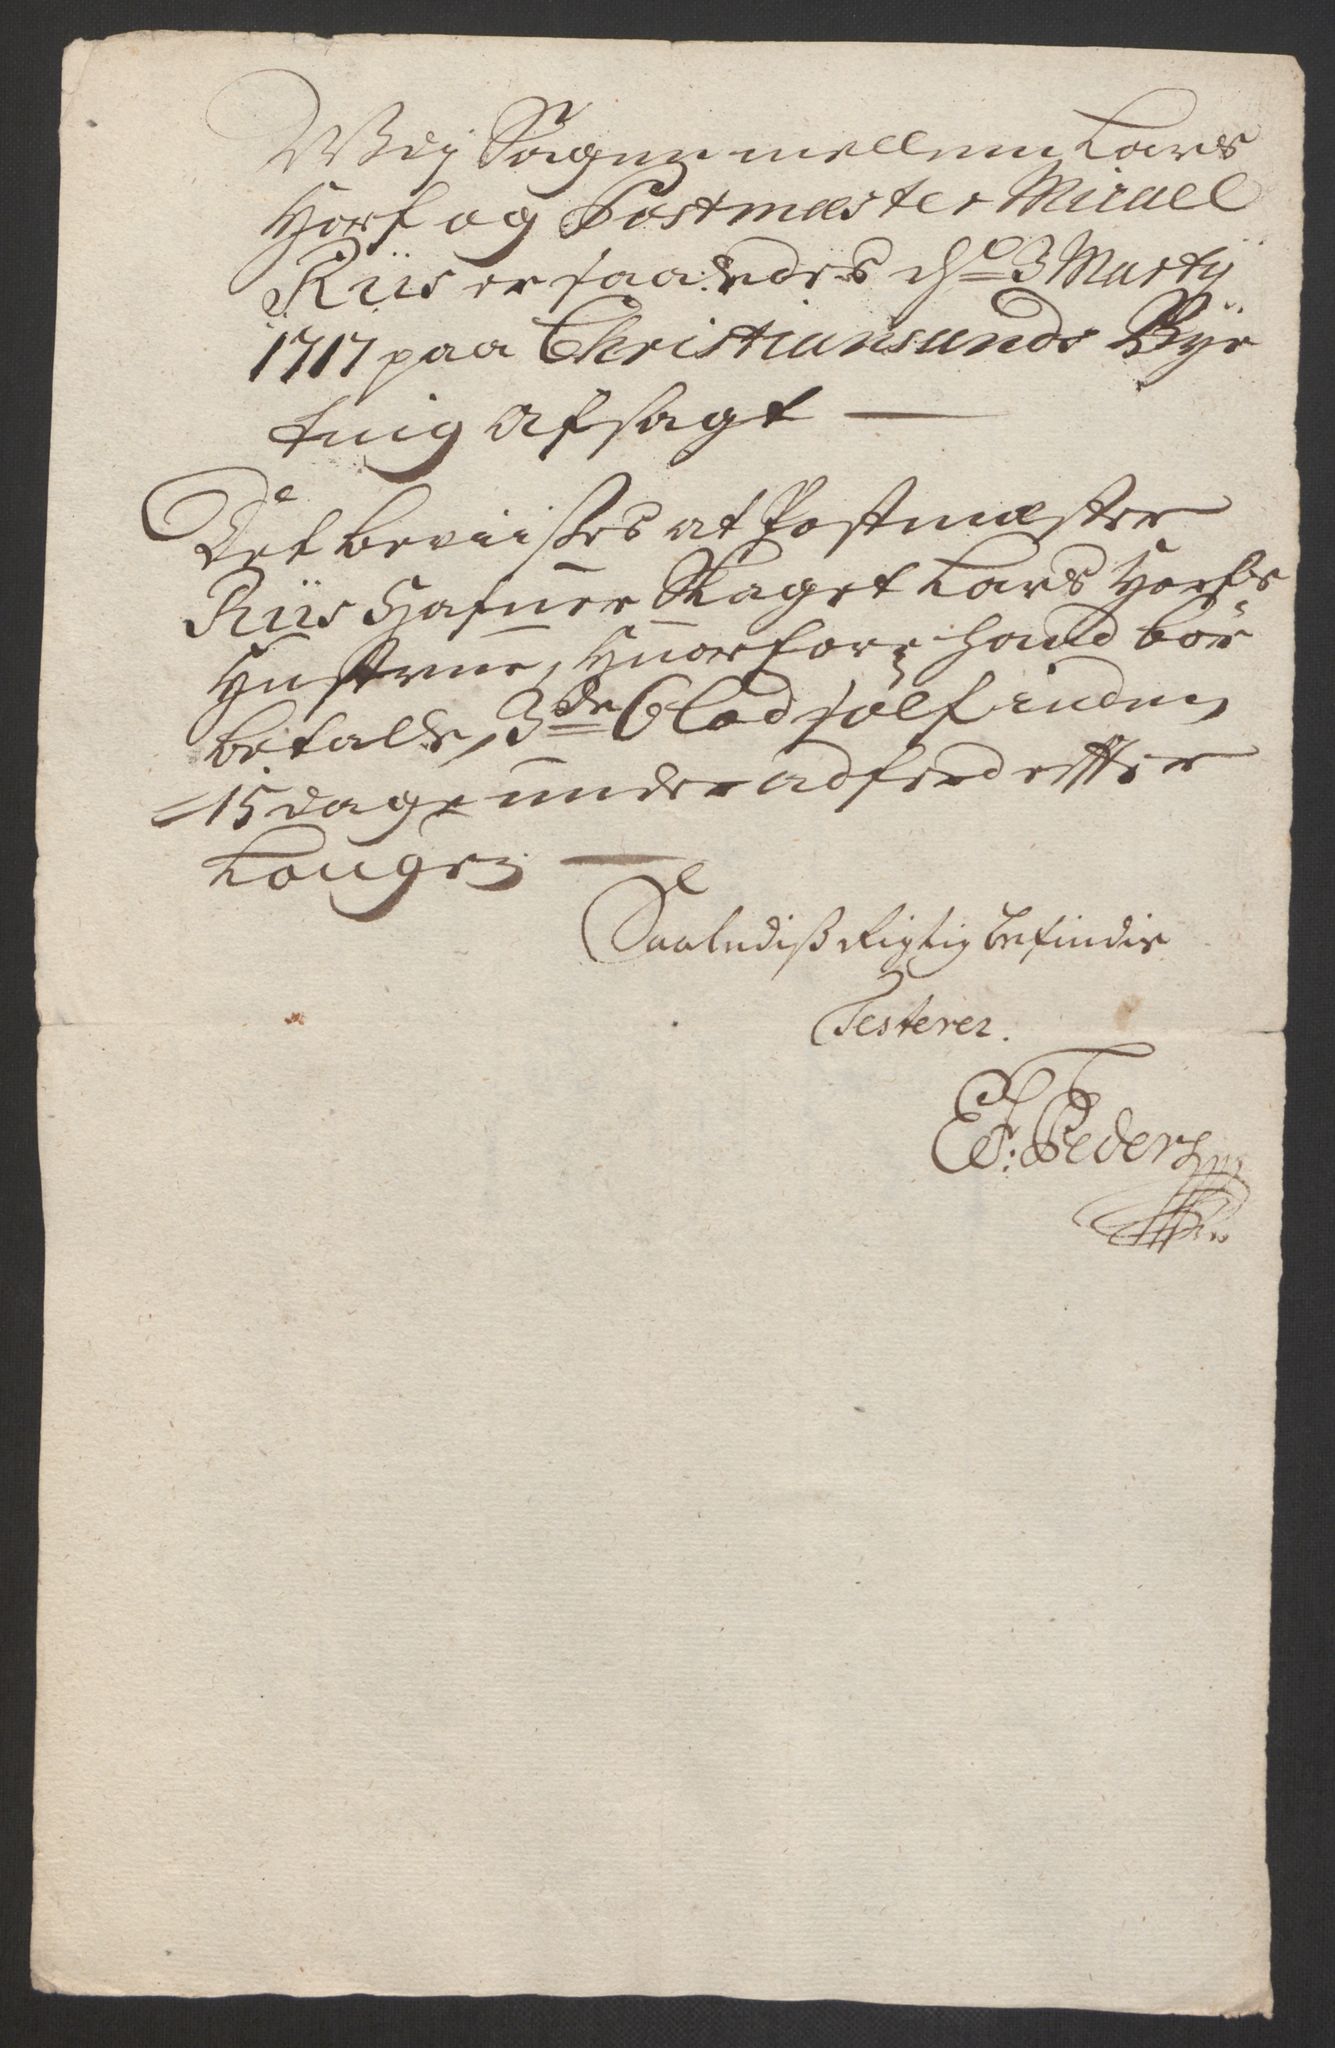 Udj Sagen mellem Lars
Horf og Postmæster Micael
Riis er saaledes dend 3 Martij
1717 paa Christiansunds Bÿe
ting afsagt —
Det beviises at Postmæster
Riis Hafuer Slaget Lars Horfs
Hustrue, Huorfore hand bör
betale, 3de 6 Lod sölf inden
15 dage under adferd effter
Lougen —
Saalediß Rigtig befindis
Testerer.
E: Pedersen